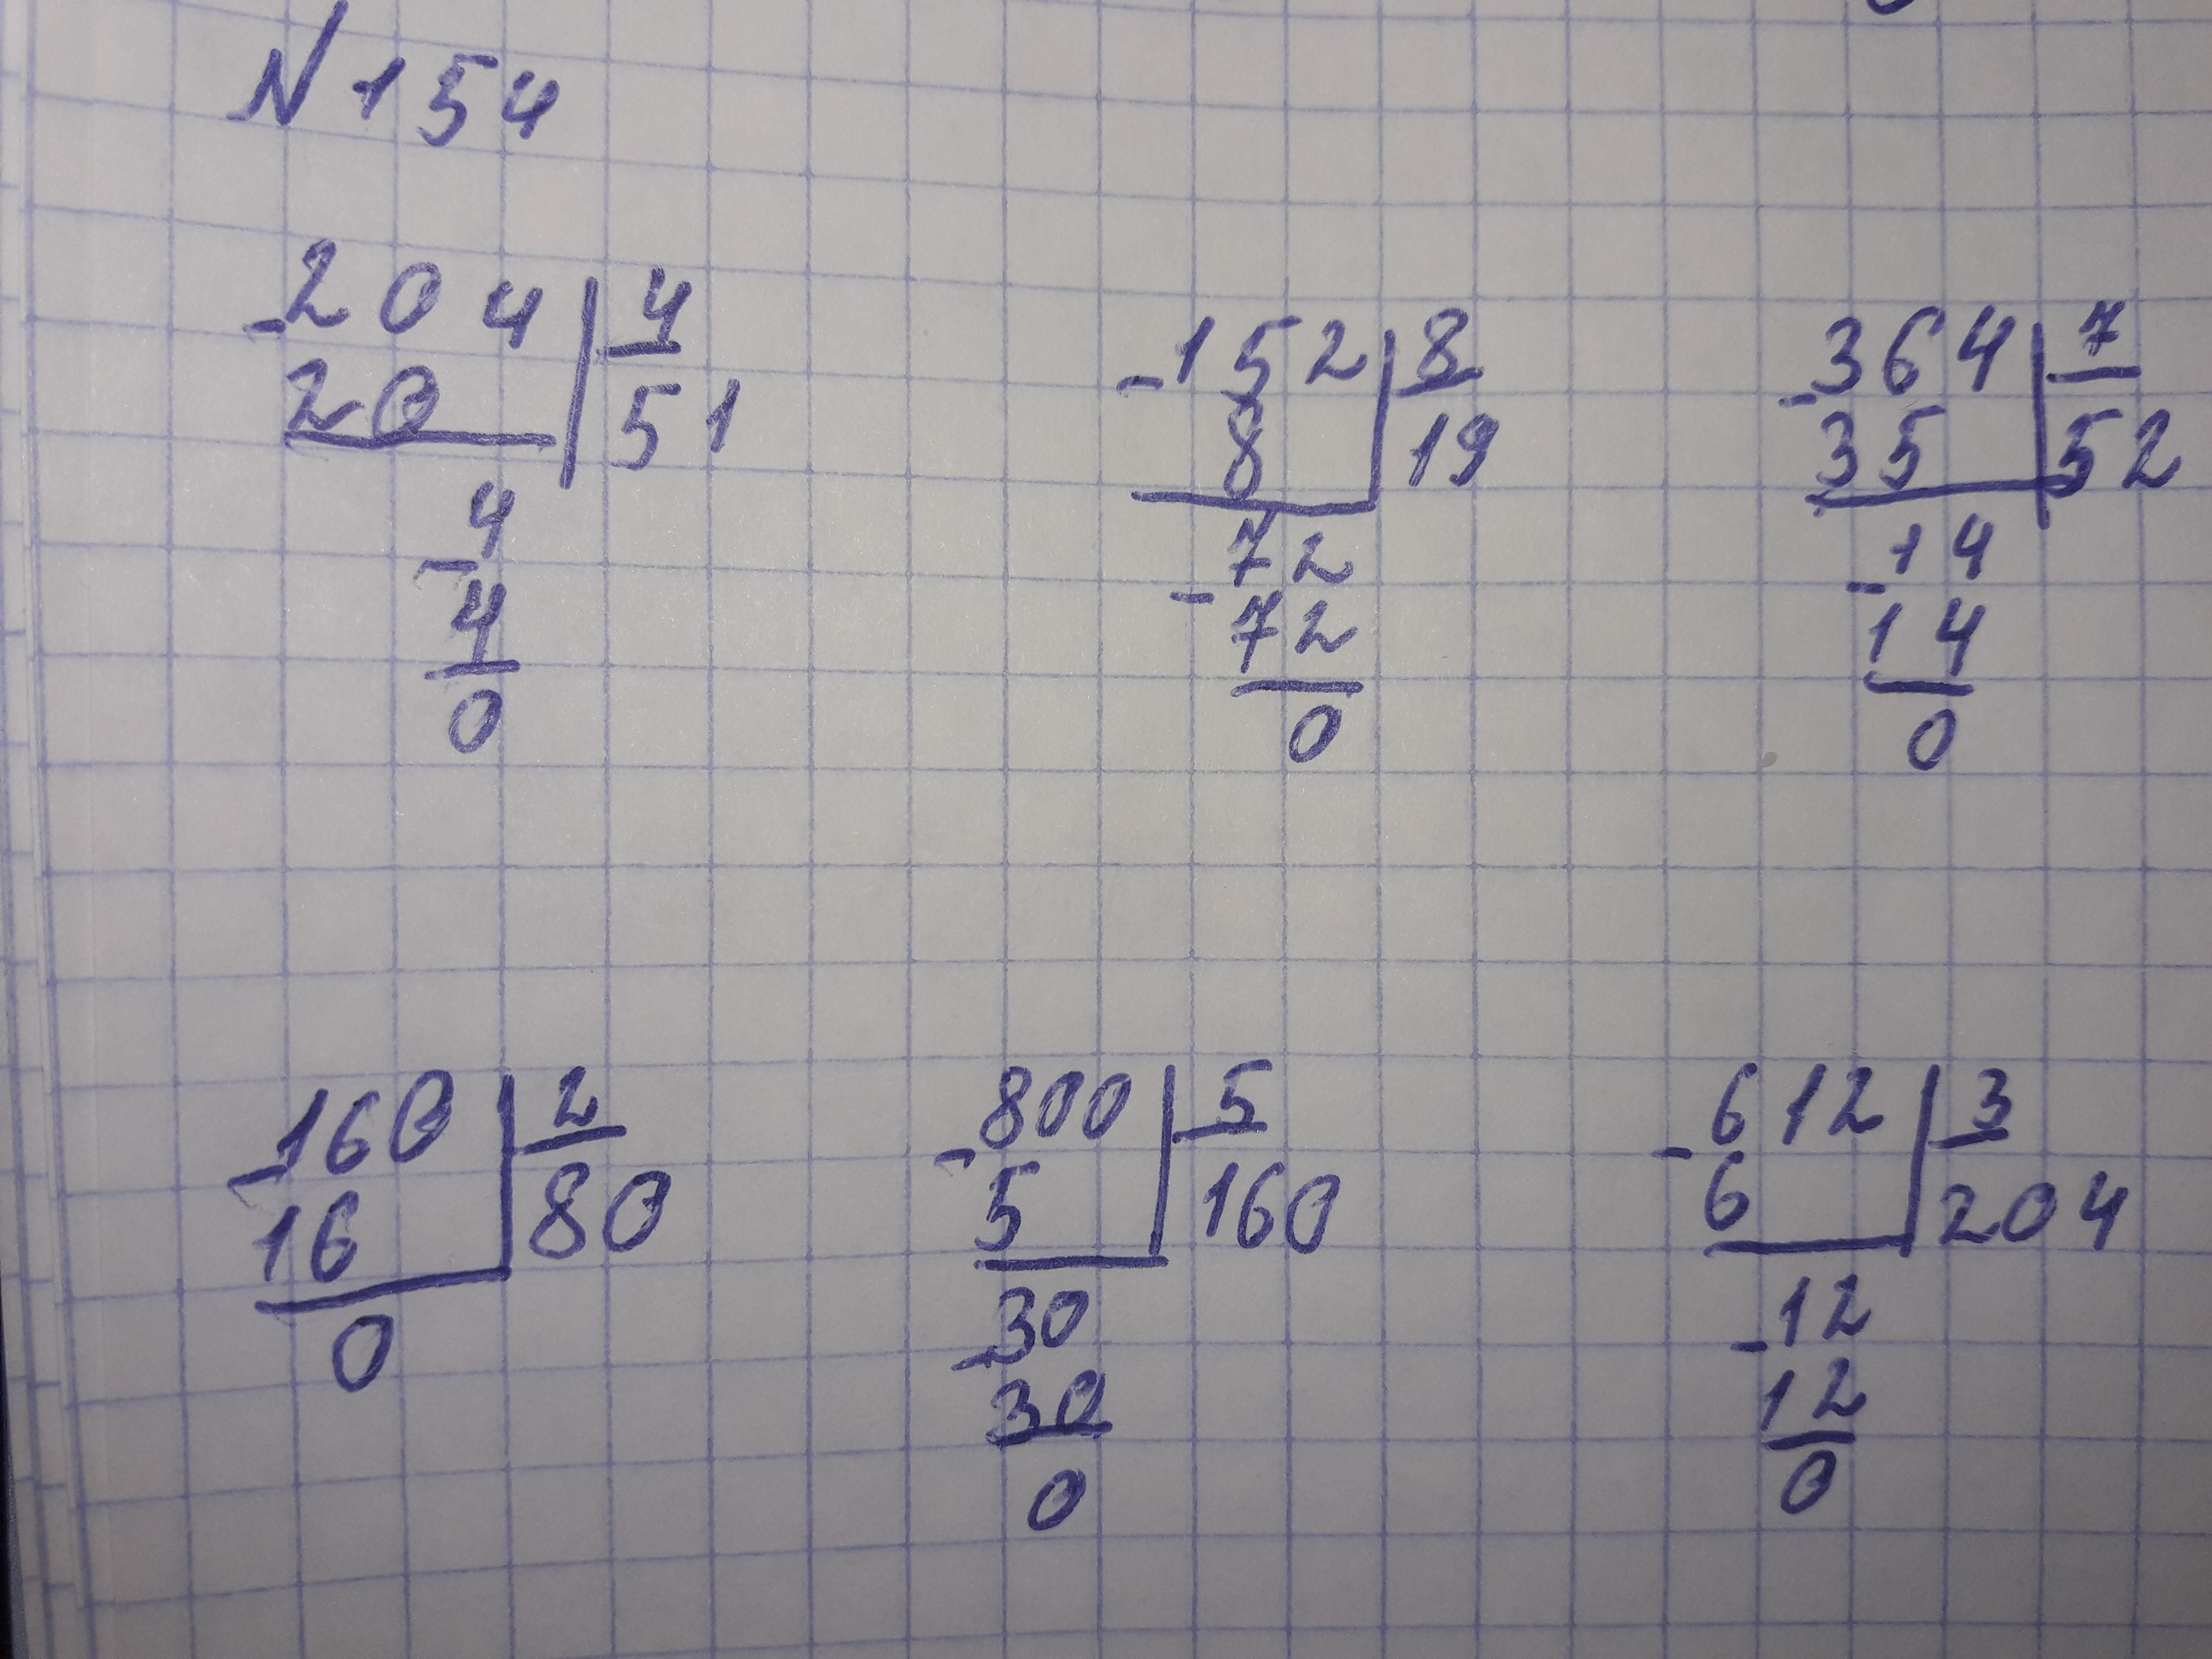 N 154
-204 | 4
20 | 51
-4
4
0
-152 | 8
8 | 19
-72
72
0
-364 | 7
35 | 52
-14
14
0
-160 | 2
16 | 80
0
-800 | 5
5 | 160
-30
30
0
-612 | 3
6 | 204
-12
12
0